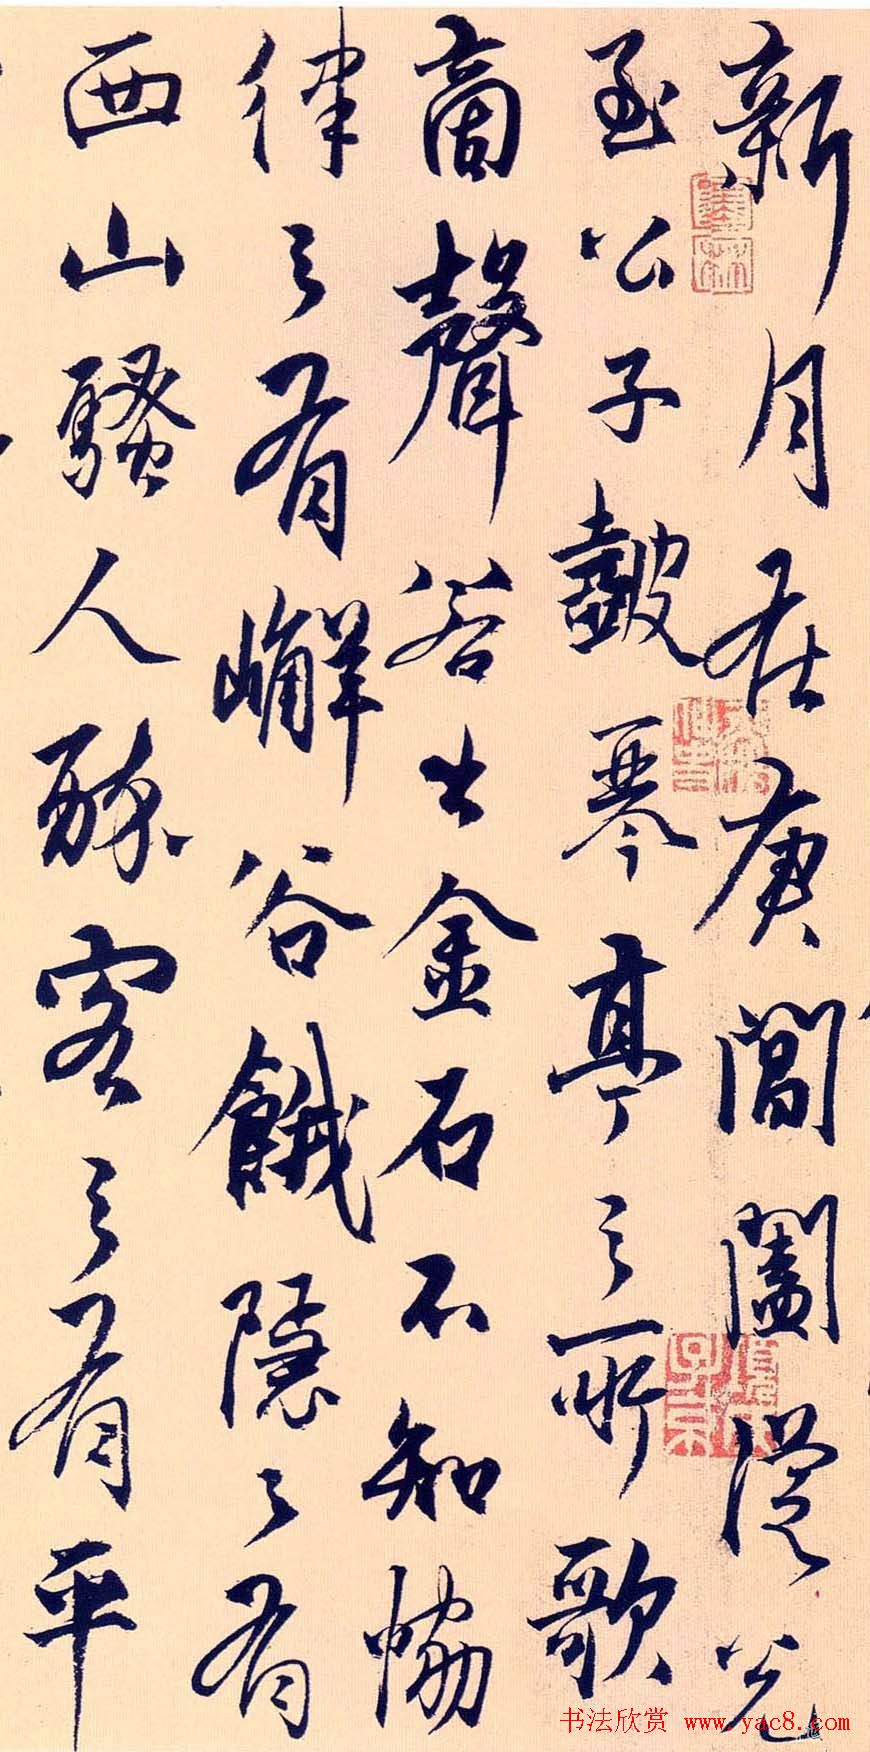 新月在庚閶闔從兌
至公子皷琴亭之所歌
商聲若出金石不知協
律之有嶰谷餓隱之有
西山騷人醉客之有平
书法欣赏 www.yac8.com